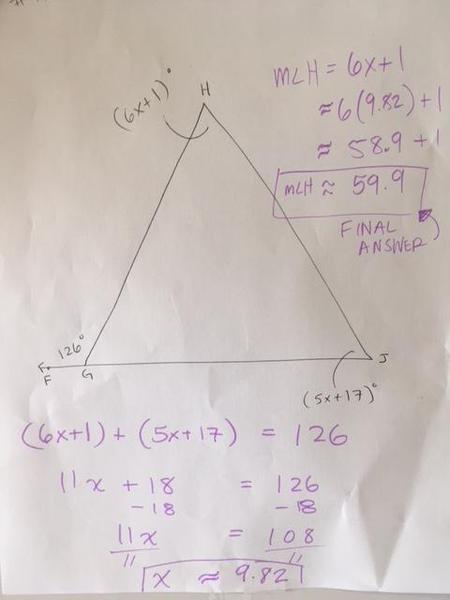 H
(6x+1)°
m∠H = 6x+1
≈ 6(9.82)+1
≈ 58.9 + 1
m∠H ≈ 59.9
FINAL
ANSWER
126°
F
G
J
(5x+17)°
(6x+1) + (5x+17) = 126
11x + 18 = 126
-18 -18
11x = 108
11 11
x ≈ 9.82